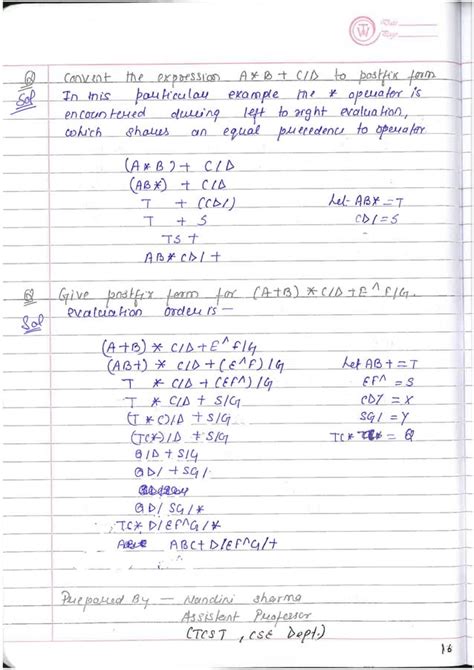 Date
Page
Q Convert the expression A*B + C/D to postfix form
Sol In this particular example the * operator is
encountered during left to right evaluation,
which shares an equal precedence to operator
(A*B) + C/D
(AB*) + C/D
T + (CD/) Let AB* = T
T + S CD/ = S
TS +
AB* CD/ +
Q Give postfix form for (A+B) * C/D + E^F/G.
Sol evaluation order is —
(A+B) * C/D + E^F/G
(AB+) * C/D + (E^F)/G Let AB + = T
T * C/D + (EF^)/G EF^ = S
T * C/D + S/G CD/ = X
(T*C)/D + S/G SG/ = Y
(TC*)/D + S/G TC* = Q
Q/D + S/G
QD/ + SG/
QD/ SG/*
TC* D/EF^G/*
ABC+D/EF^G/+
Prepared By — Nandini Sharma
Assistant Professor
(TCST, CSE Dept.)
16